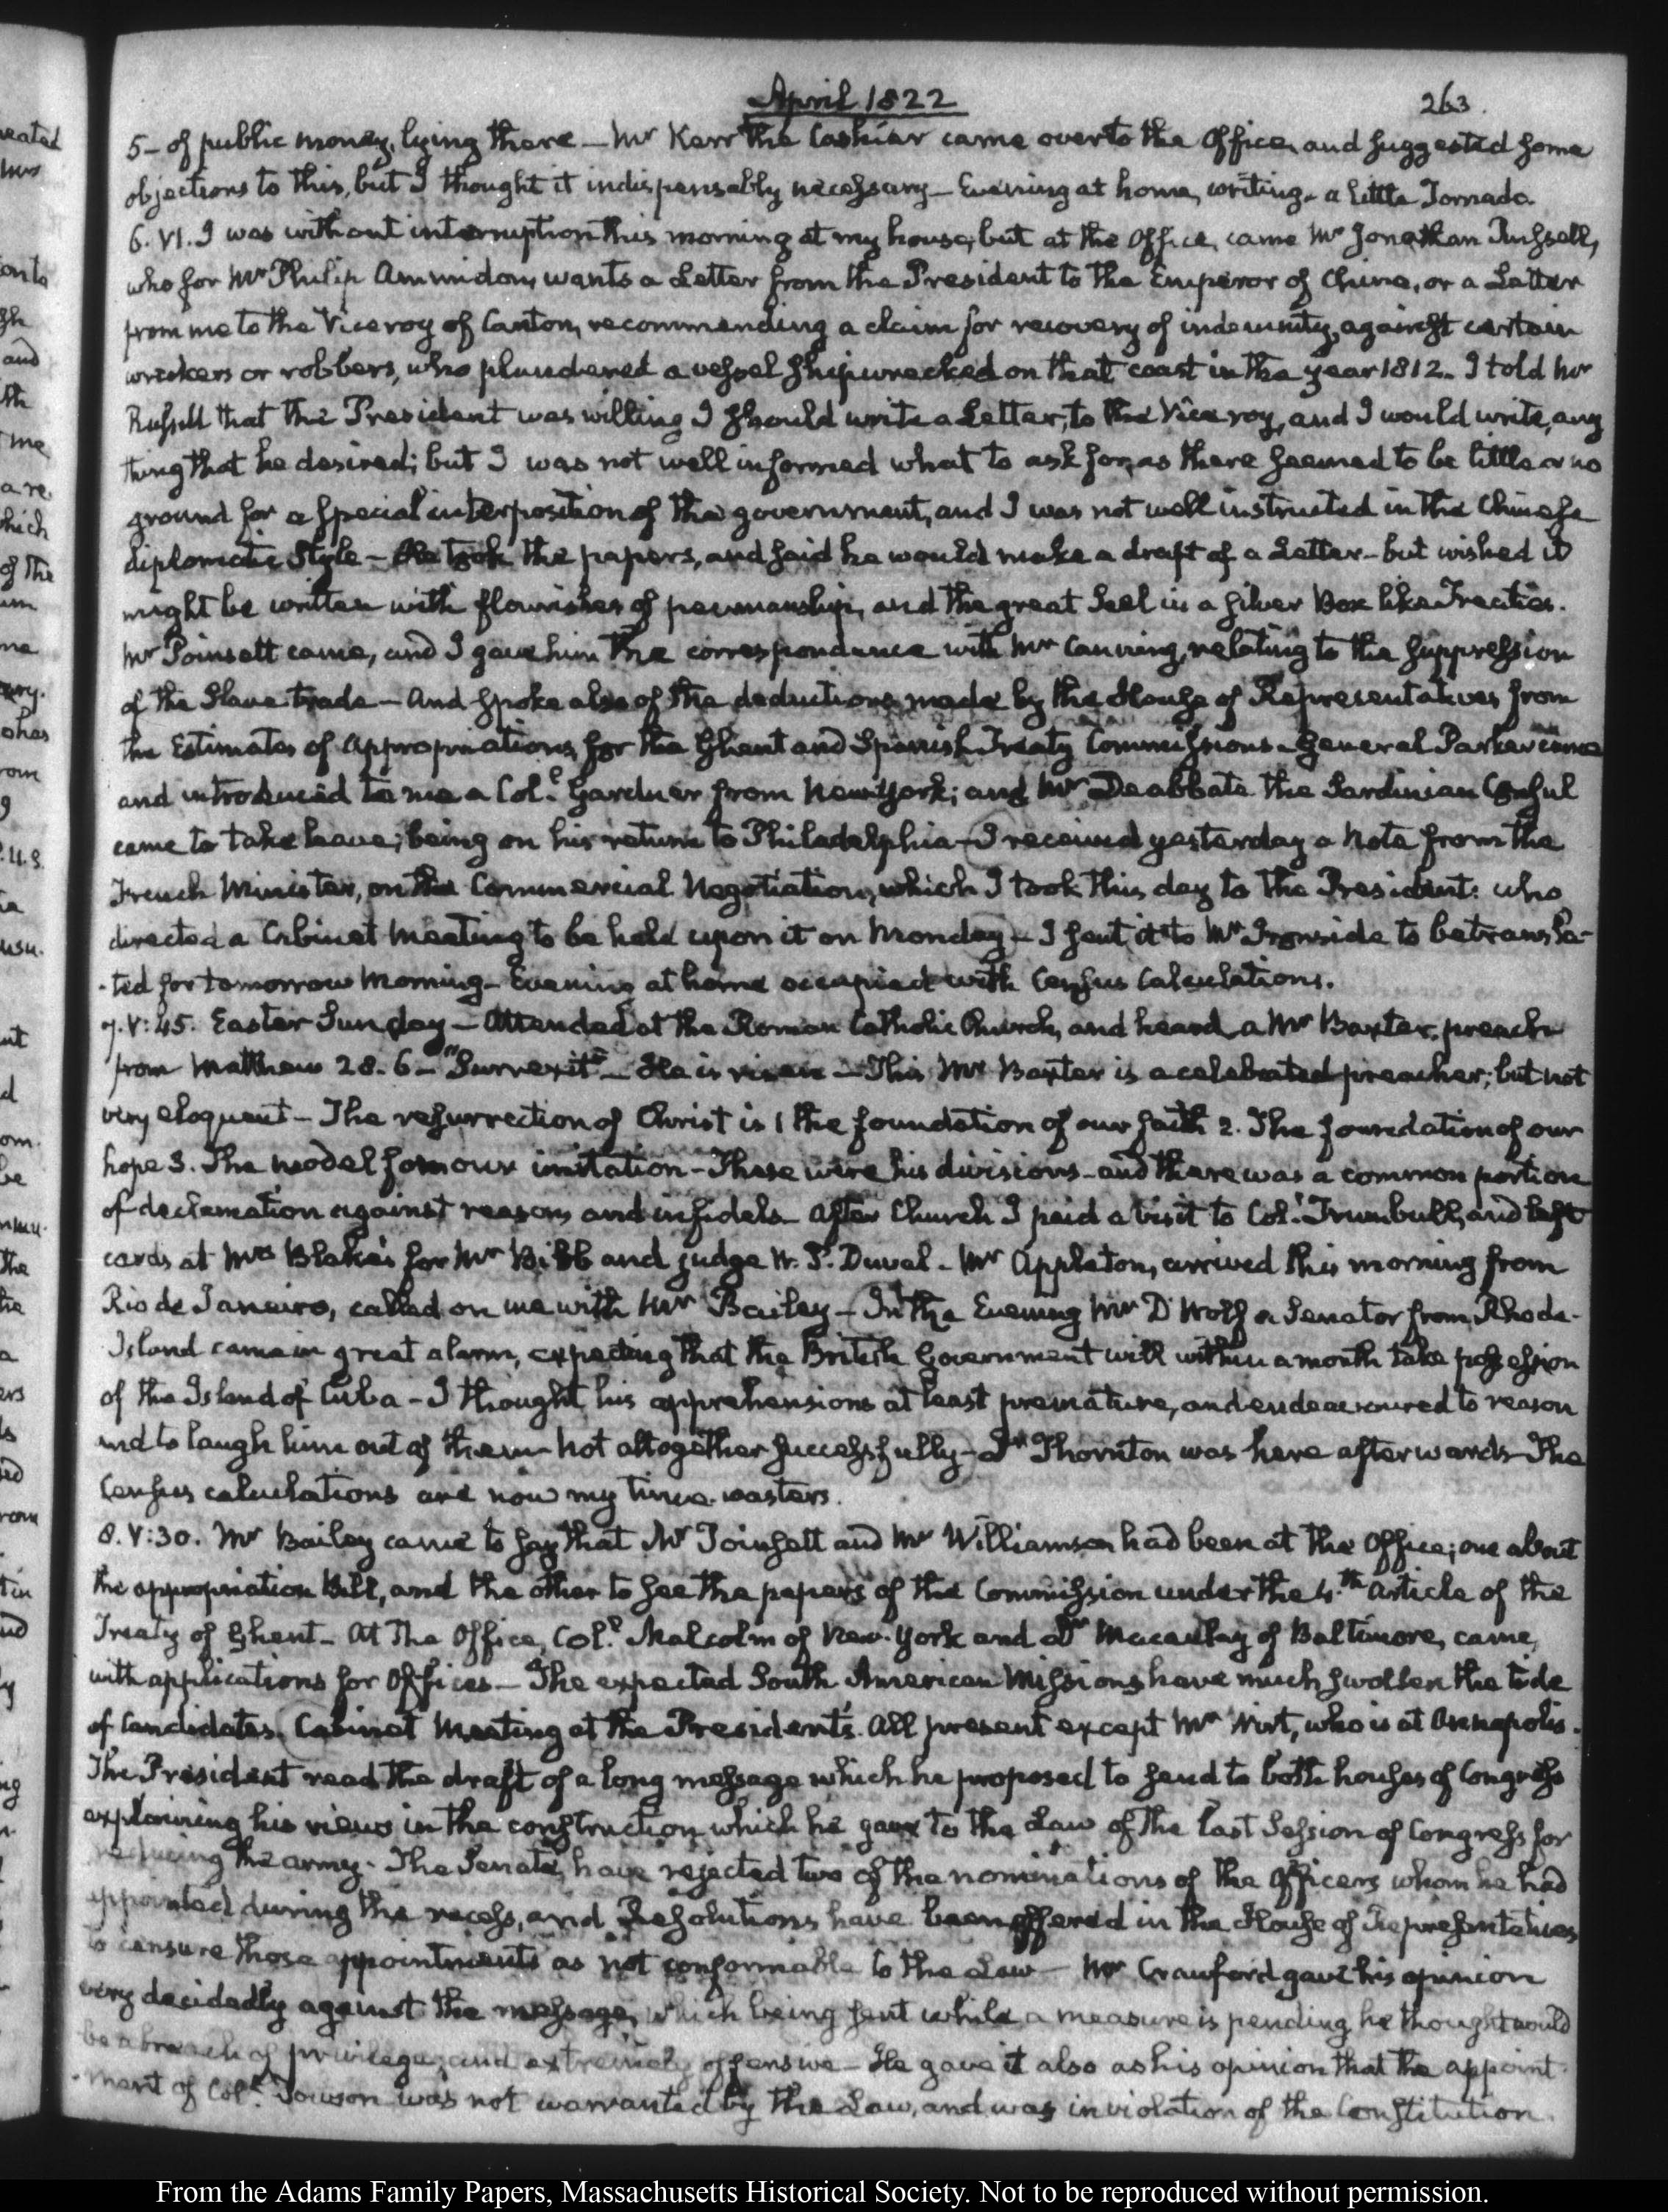 April 1822
263.
5- of public money, lying there — Mr Kerr the Cashier came over to the Office, and suggested some
objections to this, but I thought it indispensably necessary — Evening at home, writing — a little Tornado.
6. VI. I was without interruption this morning at my house; but at the Office, came Mr Jonathan Russell,
who for Mr Philip Ammidon, wants a Letter from the President to the Emperor of China, or a Letter
from me to the Viceroy of Canton, recommending a claim for recovery of indemnity, against certain
wreckers or robbers, who plundered a vessel shipwrecked on that coast in the year 1812. I told Mr
Russell that the President was willing I should write a Letter, to the Viceroy, and I would write, any
thing that he desired; but I was not well informed what to ask for, as there seemed to be little or no
ground for a special interposition of the government, and I was not well instructed in the Chinese
diplomatic Style — He took the papers, and said he would make a draft of a Letter — but wished it
might be written with flourishes of penmanship, and the great Seal in a silver Box like Treaties.
Mr Poinsett came, and I gave him the correspondence with Mr Canning, relating to the suppression
of the Slave trade — And spoke also of the deductions made by the House of Representatives from
the Estimates of Appropriations for the Ghent and Spanish Treaty Commissions — General Parker came
and introduced to me a Coll. Gardner from New York; and Mr Deabbate the Sardinian Consul
came to take leave; being on his return to Philadelphia — I received yesterday a Note from the
French Minister, on the Commercial Negotiation, which I took this day to the President: who
directed a Cabinet Meeting to be held upon it on Monday — I sent it to Mr Ironside to be transla-
-ted for tomorrow Morning — Evening at home occupied with Census Calculations.
7. V:45. Easter Sunday — Attended at the Roman Catholic Church, and heard a Mr Baxter, preach
from Matthew 28. 6 — "Surrexit" — He is risen — This Mr Baxter is a celebrated preacher; but not
very eloquent — The resurrection of Christ is 1 the foundation of our faith 2. The foundation of our
hope 3. The model for our imitation — These were his divisions — and there was a common portion
of declamation against reason, and infidels — After Church I paid a visit to Col. Trumbull, and left
cards at Mrs Blake's for Mr Bibb and judge W. P. Duval — Mr Appleton, arrived this morning from
Rio de Janeiro, called on me with Mr Bailey — In the Evening Mr D'Wolf a Senator from Rhode-
Island came in great alarm, expecting that the British Government will within a month take possession
of the Island of Cuba — I thought his apprehensions at least premature, and endeavoured to reason
and to laugh him out of them — not altogether successfully — Dr Thornton was here afterwards — The
Census calculations are now my time-wasters.
8. V:30. Mr Bailey came to say that Mr Poinsett and Mr Williamson had been at the Office; one about
the appropriation Bill, and the other to see the papers of the Commission under the 4.th Article of the
Treaty of Ghent — At the Office, Coll. Malcolm of New-York and Dr Macaulay of Baltimore, came,
with applications for Offices — The expected South American Missions have much swollen the tide
of Candidates. Cabinet Meeting at the President's. All present except Mr Wirt, who is at Annapolis.
The President read the draft of a long message which he proposed to send to both houses of Congress
explaining his views in the construction which he gave to the Law of the last Session of Congress for
reducing the army. The Senate, have rejected two of the nominations of the Officers whom he had
appointed during the recess, and Resolutions have been offered in the House of Representatives
to censure those appointments as not conformable to the Law — Mr Crawford gave his opinion
very decidedly against the message, which being sent while a measure is pending he thought would
be a breach of privilege, and extremely offensive — He gave it also as his opinion that the appoint-
-ment of Coll. Towson was not warranted by the Law, and was in violation of the Constitution.
From the Adams Family Papers, Massachusetts Historical Society. Not to be reproduced without permission.